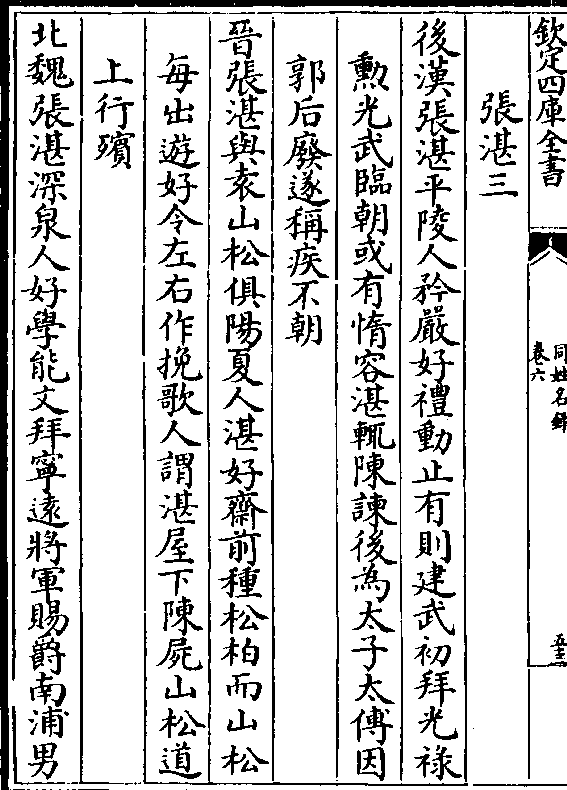 欽定四庫全書
同姓名錄
卷六
張湛三
後漢張湛平陵人矜嚴好禮動止有則建武初拜光祿
勲光武臨朝或有惰容湛輒陳諫後為太子太傅因
郭后廢遂稱疾不朝
晉張湛與袁山松俱陽夏人湛好齋前種松柏而山松
每出遊好令左右作挽歌人謂湛屋下陳屍山松道
上行殯
北魏張湛深泉人好學能文拜寧遠將軍賜爵南浦男